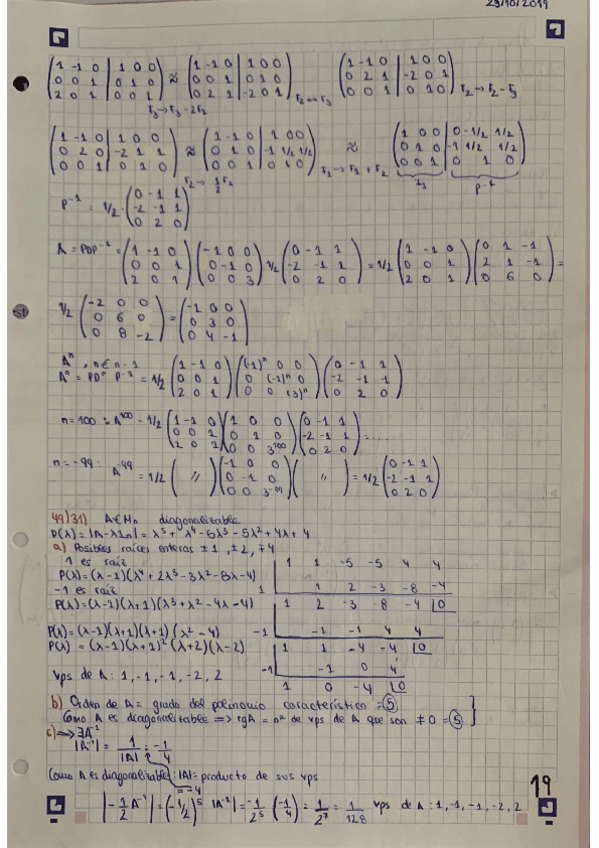 23/10/2019
(1 -1 0 | 1 0 0 / 0 0 1 | 0 1 0 / 2 0 1 | 0 0 1) ≈ (1 -1 0 | 1 0 0 / 0 0 1 | 0 1 0 / 0 2 1 | -2 0 1) (1 -1 0 | 1 0 0 / 0 2 1 | -2 0 1 / 0 0 1 | 0 1 0)
F3 → F3 - 2F1 F2 ↔ F3 F2 → F2 - F3
(1 -1 0 | 1 0 0 / 0 2 0 | -2 1 1 / 0 0 1 | 0 1 0) ≈ (1 -1 0 | 1 0 0 / 0 1 0 | -1 1/2 1/2 / 0 0 1 | 0 1 0) ≈ (1 0 0 | 0 -1/2 1/2 / 0 1 0 | -1 1/2 1/2 / 0 0 1 | 0 1 0)
F2 → 1/2 F2 F1 → F1 + F2 I3 P⁻¹
P⁻¹ = 1/2 · (0 -1 1 / -2 -1 1 / 0 2 0)
A = PDP⁻¹ = (1 -1 0 / 0 0 1 / 2 0 1) (-1 0 0 / 0 -1 0 / 0 0 3) 1/2 (0 -1 1 / -2 -1 1 / 0 2 0) = 1/2 (1 -1 0 / 0 0 1 / 2 0 1) (0 1 -1 / 2 1 -1 / 0 6 0) =
1/2 (-2 0 0 / 0 6 0 / 0 8 -2) = (-1 0 0 / 0 3 0 / 0 4 -1)
Aⁿ
Aⁿ = PDⁿ P⁻¹ = 1/2 (1 -1 0 / 0 0 1 / 2 0 1) ((-1)ⁿ 0 0 / 0 (-1)ⁿ 0 / 0 0 (3)ⁿ) (0 -1 1 / -2 -1 1 / 0 2 0)
n=100 : A¹⁰⁰ = 1/2 (1 -1 0 / 0 0 1 / 2 0 1) (1 0 0 / 0 1 0 / 0 0 3¹⁰⁰) (0 -1 1 / -2 -1 1 / 0 2 0) = ....
n = -99 : A⁹⁹ = 1/2 ( // ) (-1 0 0 / 0 -1 0 / 0 0 3⁻⁹⁹) ( // ) = 1/2 (0 -1 1 / -2 -1 1 / 0 2 0)
49/31) A∈Mn diagonalizable
P(λ) = |A-λIn| = λ⁵ + λ⁴ - 5λ³ - 5λ² + 4λ + 4
a) Posibles raíces enteras ±1, ±2, ∓4
1 es raíz
P(λ) = (λ-1)(λ⁴ + 2λ³ - 3λ² - 8λ - 4)
-1 es raíz
P(λ) = (λ-1)(λ+1)(λ³ + λ² - 4λ - 4)
P(λ) = (λ-1)(λ+1)(λ+1)(λ² - 4)
P(λ) = (λ-1)(λ+1)²(λ+2)(λ-2)
vps de A : 1, -1, -1, -2, 2
1 1 -5 -5 4 4
1 1 2 -3 -8 -4
1 2 -3 -8 -4 |0
-1 -1 -1 4 4
1 1 -4 -4 |0
-1 -1 0 4
1 0 -4 |0
b) Orden de A = grado del polinomio característico = 5
Como A es diagonalizable ⟹ rgA = nº de vps de A que son ≠ 0 = 5
c) ⟹ ∃A⁻¹
|A⁻¹| = 1/|A| = -1/4
Como A es diagonalizable : |A| = producto de sus vps
= -4
|-1/2 A⁻¹| = (-1/2)⁵ |A⁻¹| = -1/2⁵ (-1/4) = 1/2⁷ = 1/128 vps de A : 1, -1, -1, -2, 2
19